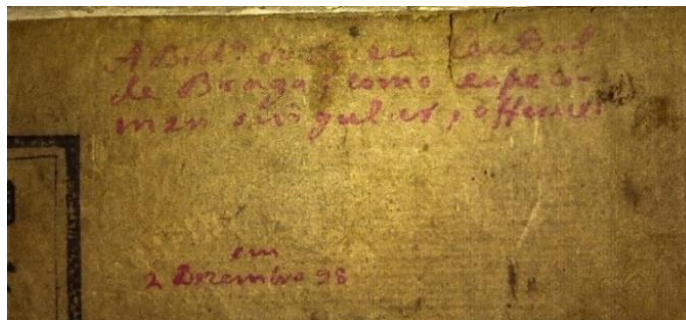 A Bibl.ª
de Braga, como especi-
men singular, offerece
em
2 Dezembro 98